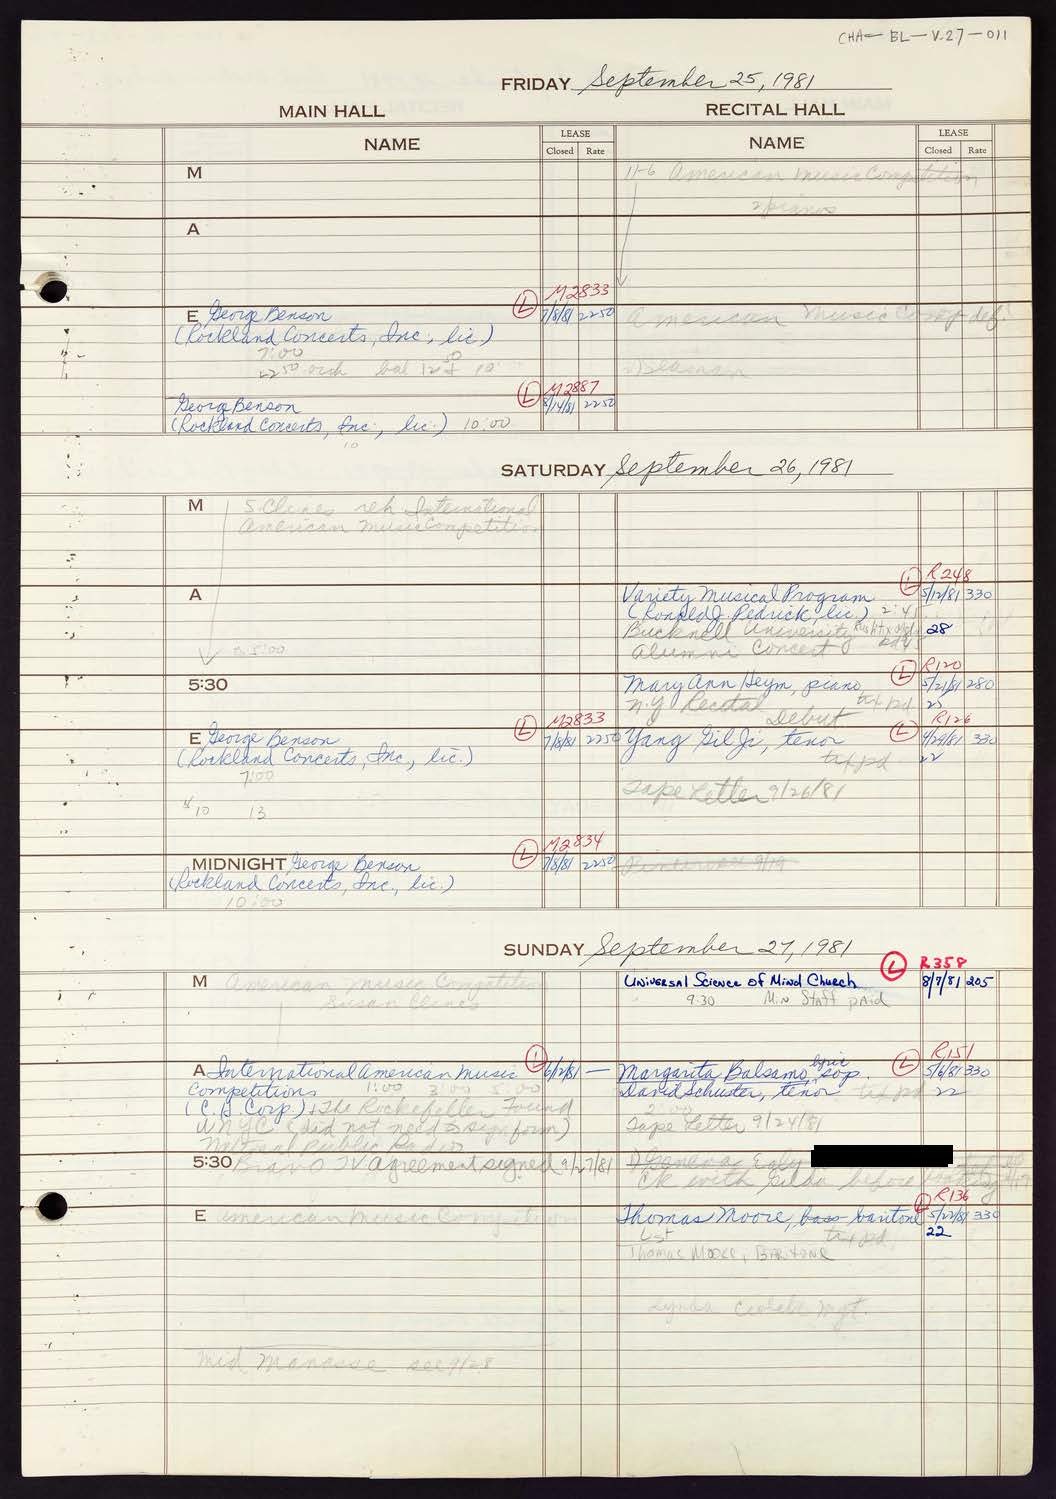 CHA - BL - V.27 - 011
FRIDAY September 25, 1981
MAIN HALL
RECITAL HALL
NAME
LEASE
Closed Rate
NAME
LEASE
Closed Rate
M
11-6 American Music Competition
2 pianos
A
E George Benson
(Rockland Concerts, Inc., lic)
7:00
L M2833
7/8/81 2250
American Music Comp
George Benson
(Rockland Concerts, Inc., lic.) 10:00
10
L M2887
8/14/81 2250
SATURDAY September 26, 1981
M
S Clines reh International
American Music Competition
5:00
A
Variety Musical Program
(Ronald J. Pedrick, lic.) 2:45
Bucknell University
Alumni Concert
L R248
5/12/81 330
28
5:30
Mary Ann Heym, piano
N.Y. Recital
Debut
tax pd
L R120
5/21/81 280
22
E George Benson
(Rockland Concerts, Inc., lic.)
7:00
8/10 13
L M2833
7/8/81 2250
Yang Gil Ji, tenor
tax pd
Tape Letter 9/26/81
L R126
4/29/81 330
22
MIDNIGHT George Benson
(Rockland Concerts, Inc., lic.)
10:00
L M2834
7/8/81 2250
9/19
SUNDAY September 27, 1981
M
American Music Competition
Susan Clines
Universal Science of Mind Church
9:30 Min Staff paid
L R358
8/7/81 205
A International American Music
Competitions 1:00 3:00 5:00
(C.H. Corp.) + The Rockefeller Found
WNYC (did not need to sign form)
National Public Radio
L 6/2/81 —
Margarita Balsamo, lyric sop.
David Schuster, tenor tax pd
2:00
Tape Letter 9/24/81
L R151
5/6/81 330
22
5:30 Bravo TV Agreement signed 9/27/81
ck with Gilda before booking
E American Music Competition
Thomas Moore, bass-baritone
tax pd
Thomas Moore, Baritone
L R136
5/22/81 330
22
Mgt.
Mid Manasse see 9/28